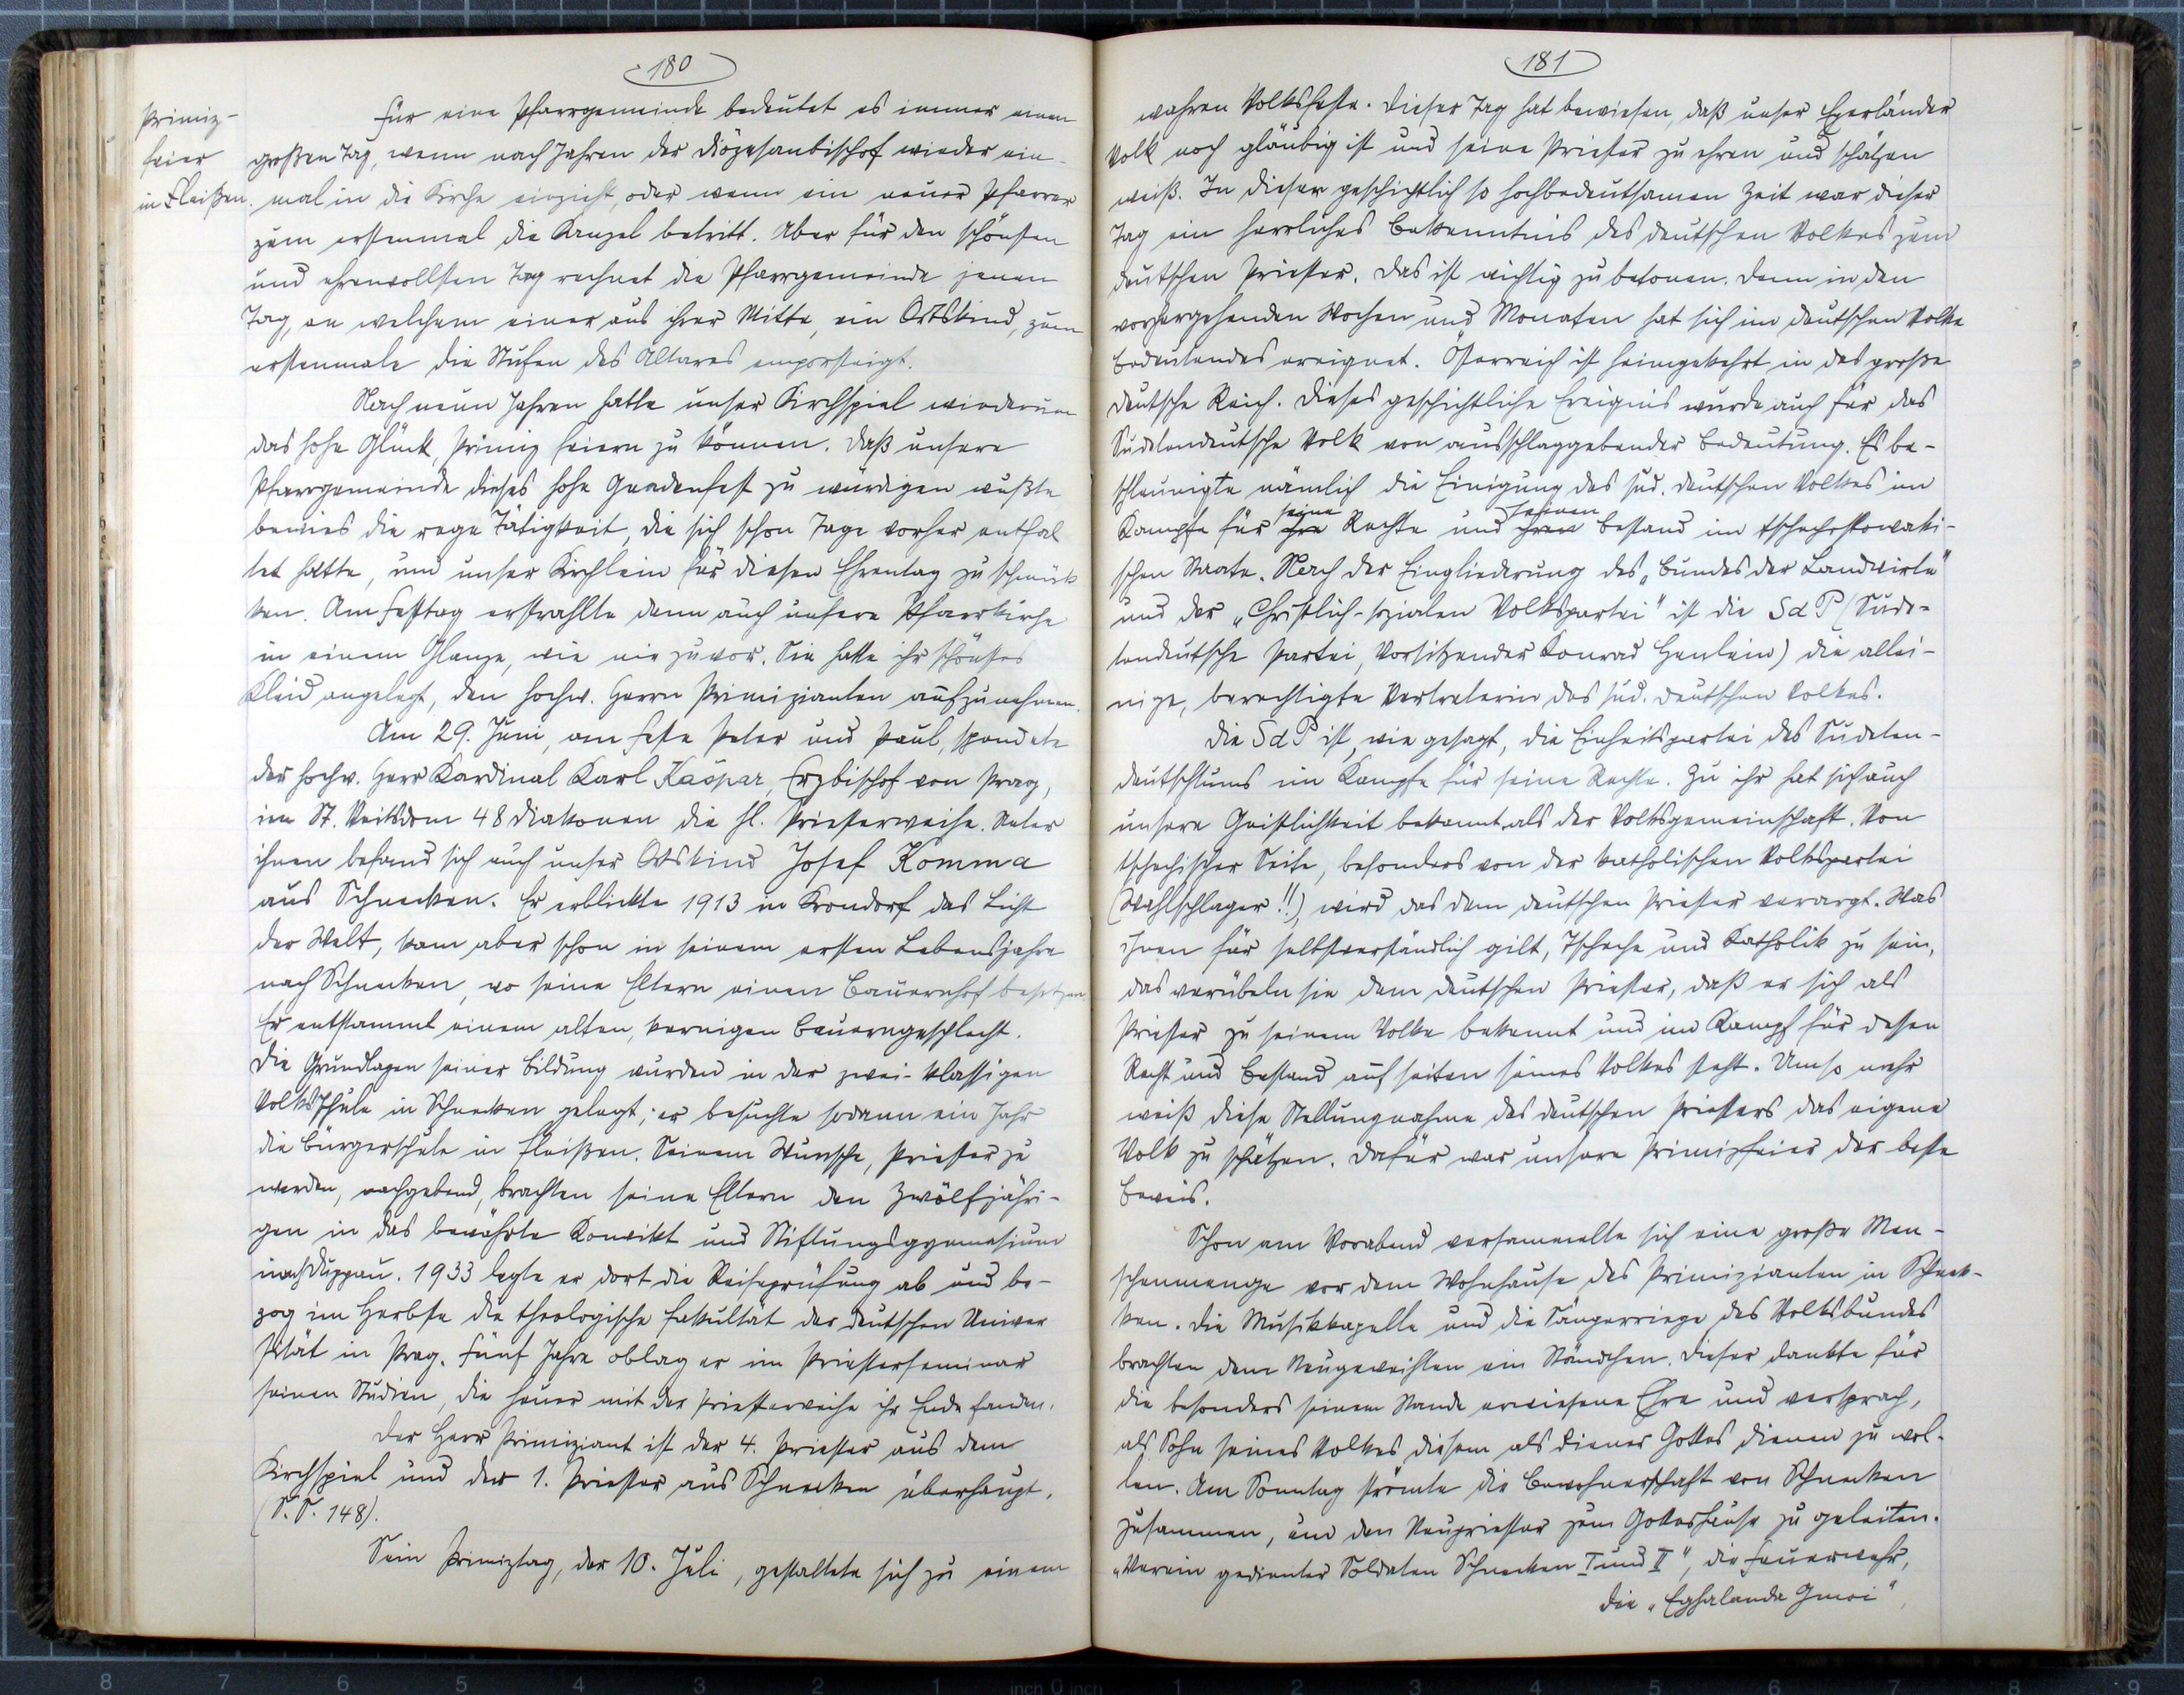 180
Primiz-
feier
in Fleißen.
Für eine Pfarrgemeinde bedeutet es immer einen
großen Tag, wenn nach Jahren der Diözesanbischof wieder ein-
mal in die Kirche einzieht, oder wenn ein neuer Pfarrer
zum erstenmal die Kanzel betritt. Aber für den schönsten
und ehrenvollsten Tag rechnet die Pfarrgemeinde jenen
Tag, an welchem einer aus ihrer Mitte, ein Ortskind, zum
erstenmale die Stufen des Altares emporsteigt.
Nach neun Jahren hatte unser Kirchspiel wiederum
das hohe Glück, Primiz feiern zu können. Daß unsere
Pfarrgemeinde dieses hohe Gnadenfest zu würdigen wußte
bewies die rege Tätigkeit, die sich schon Tage vorher entfal
tet hatte, um unser Kirchlein für diesen Ehrentag zu schmük
ken. Am Festtag erstrahlte denn auch unsere Pfarrkirche
in einem Glanze, wie nie zuvor. Sie hatte ihr schönstes
Kleid angelegt, den hochw. Herrn Primizianten aufzunehmen.
Am 29. Juni, am Feste Peter und Paul, spendete
der hochw. Herr Kardinal Karl Kašpar, Erzbischof von Prag,
im St. Veitsdom 48 Diakonen die hl. Priesterweihe. Unter
ihnen befand sich auch unser Ortskind Josef Komma
aus Schnecken. Er erblickte 1913 in Krondorf das Licht
der Welt, kam aber schon in seinem ersten Lebensjahre
nach Schnecken, wo seine Eltern einen Bauernhof besitzen
Er entstammt einem alten, kernigen Bauerngeschlecht.
Die Grundlagen seiner Bildung wurden in der zwei-klassigen
Volksschule in Schnecken gelegt; er besuchte sodann ein Jahr
die Bürgerschule in Fleißen. Seinem Wunsche, Priester zu
werden, nachgebend, brachten seine Eltern den Zwölfjähri-
gen in das bewährte Konvikt und Stiftungsgymnasium
nach Duppau. 1933 legte er dort die Reifeprüfung ab und be-
zog im Herbste die theologische Fakultät der deutschen Univer
sität in Prag. Fünf Jahre oblag er im Priesterseminar
seinen Studien, die heuer mit der Priesterweihe ihr Ende fanden.
Der Herr Primiziant ist der 4. Priester aus dem
Kirchspiel und der 1. Priester aus Schnecken überhaupt.
(S. S. 148).
Sein Primiztag, der 10. Juli, gestaltete sich zu einem
181
wahren Volksfeste. Dieser Tag hat bewiesen, daß unser Egerländer
Volk noch gläubig ist und seine Priester zu ehren und schätzen
weiß. In dieser geschichtlich so hochbedeutsamen Zeit war dieser
Tag ein herrliches Bekenntnis des deutschen Volkes zum
deutschen Priester. Das ist wichtig zu betonen. Denn in den
vorhergehenden Wochen und Monaten hat sich im deutschen Volke
Bedeutendes ereignet. Österreich ist heimgekehrt in das große
deutsche Reich. Dieses geschichtliche Ereignis wurde auch für das
Sudetendeutsche Volk von ausschlaggebender Bedeutung. Es be-
schleunigte nämlich die Einigung des sud. deutschen Volkes im
seine seinen
Kampfe für ihre Rechte und ihren Bestand im tschechoslowaki-
schen Staate. Nach der Eingliederung des „Bundes der Landwirte"
und der „Christlich-sozialen Volkspartei" ist die SdP (Sude-
tendeutsche Partei, Vorsitzender Konrad Henlein) die allei-
nige, berechtigte Vertreterin des sud. deutschen Volkes.
Die SdP ist, wie gesagt, die Einheitspartei des Sudeten-
deutschtums im Kampfe für seine Rechte. Zu ihr hat sich auch
unsere Geistlichkeit bekannt als der Volksgemeinschaft. Von
tschechischer Seite, besonders von der katholischen Volkspartei
(Wahlschlager!!), wird das dem deutschen Priester verargt. Was
ihnen für selbstverständlich gilt, Tscheche und Katholik zu sein,
das verübeln sie dem deutschen Priester, daß er sich als
Priester zu seinem Volke bekennt und im Kampf für dessen
Recht und Bestand auf seiten seines Volkes steht. Umso mehr
weiß diese Stellungnahme des deutschen Priesters das eigene
Volk zu schätzen. Dafür war unsere Primizfeier der beste
Beweis.
Schon am Vorabend versammelte sich eine große Men-
schenmenge vor dem Wohnhause des Primizianten in Schnek-
ken. Die Musikkapelle und die Sängerriege des Volksbundes
brachten dem Neugeweihten ein Ständchen. Dieser dankte für
die besonders seinem Stande erwiesene Ehre und versprach,
als Sohn seines Volkes diesem als Diener Gottes dienen zu wol-
len. Am Sonntag strömte die Bewohnerschaft von Schnecken
zusammen, um den Neupriester zum Gotteshause zu geleiten.
„Verein gedienter Soldaten Schnecken I und II", die Feuerwehr,
die „Eghalanda Gmoi"
8 7 6 5 4 3 2 1 inch 0 inch 1 2 3 4 5 6 7 8 9